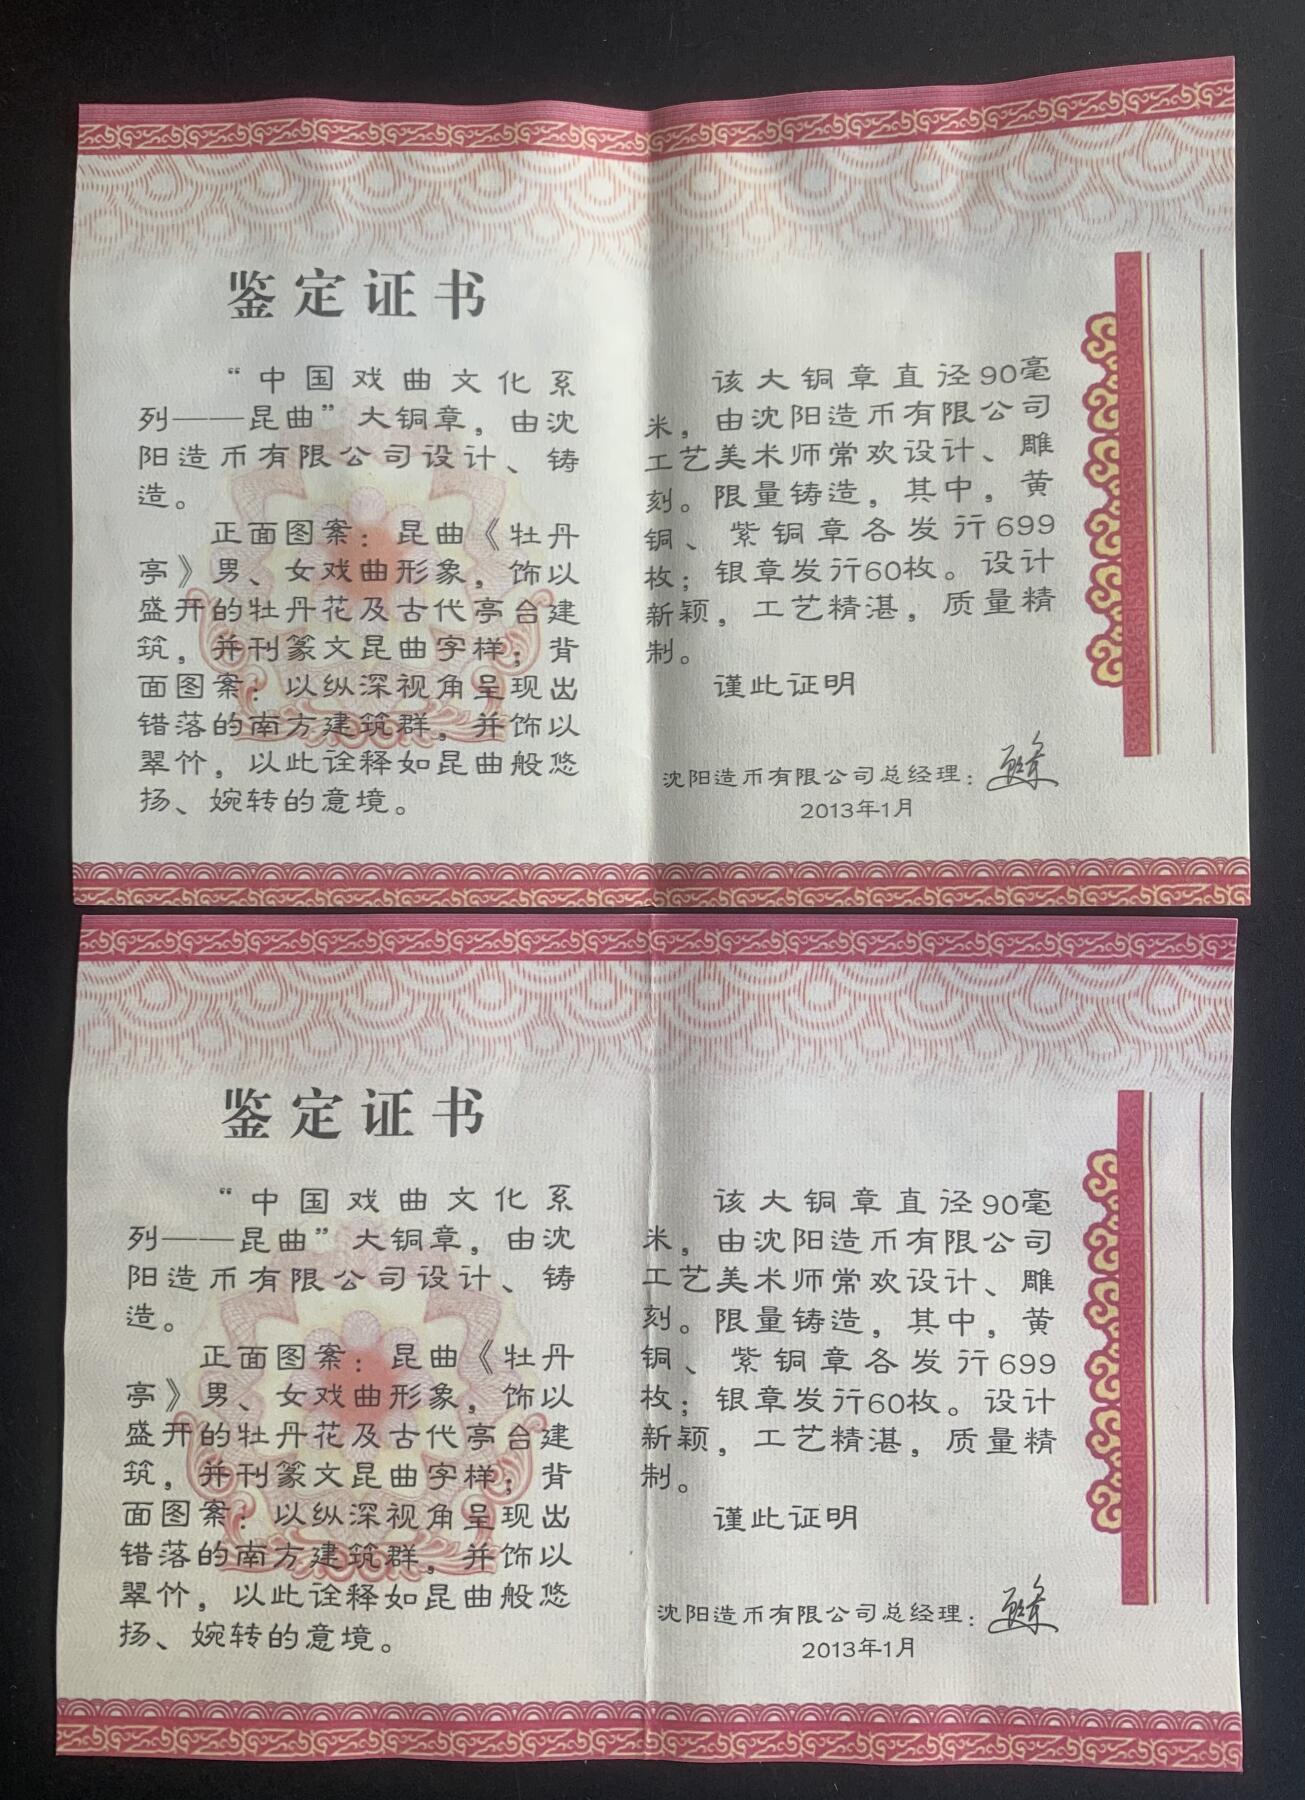 鉴定证书
“中国戏曲文化系
列——昆曲”大铜章，由沈
阳造币有限公司设计、铸
造。
正面图案：昆曲《牡丹
亭》男、女戏曲形象，饰以
盛开的牡丹花及古代亭台建
筑，并刊篆文昆曲字样；背
面图案：以纵深视角呈现出
错落的南方建筑群，并饰以
翠竹，以此诠释如昆曲般悠
扬、婉转的意境。
该大铜章直径90毫
米，由沈阳造币有限公司
工艺美术师常欢设计、雕
刻。限量铸造，其中，黄
铜、紫铜章各发行699
枚；银章发行60枚。设计
新颖，工艺精湛，质量精
制。
谨此证明
沈阳造币有限公司总经理：
2013年1月
鉴定证书
“中国戏曲文化系
列——昆曲”大铜章，由沈
阳造币有限公司设计、铸
造。
正面图案：昆曲《牡丹
亭》男、女戏曲形象，饰以
盛开的牡丹花及古代亭台建
筑，并刊篆文昆曲字样；背
面图案：以纵深视角呈现出
错落的南方建筑群，并饰以
翠竹，以此诠释如昆曲般悠
扬、婉转的意境。
该大铜章直径90毫
米，由沈阳造币有限公司
工艺美术师常欢设计、雕
刻。限量铸造，其中，黄
铜、紫铜章各发行699
枚；银章发行60枚。设计
新颖，工艺精湛，质量精
制。
谨此证明
沈阳造币有限公司总经理：
2013年1月